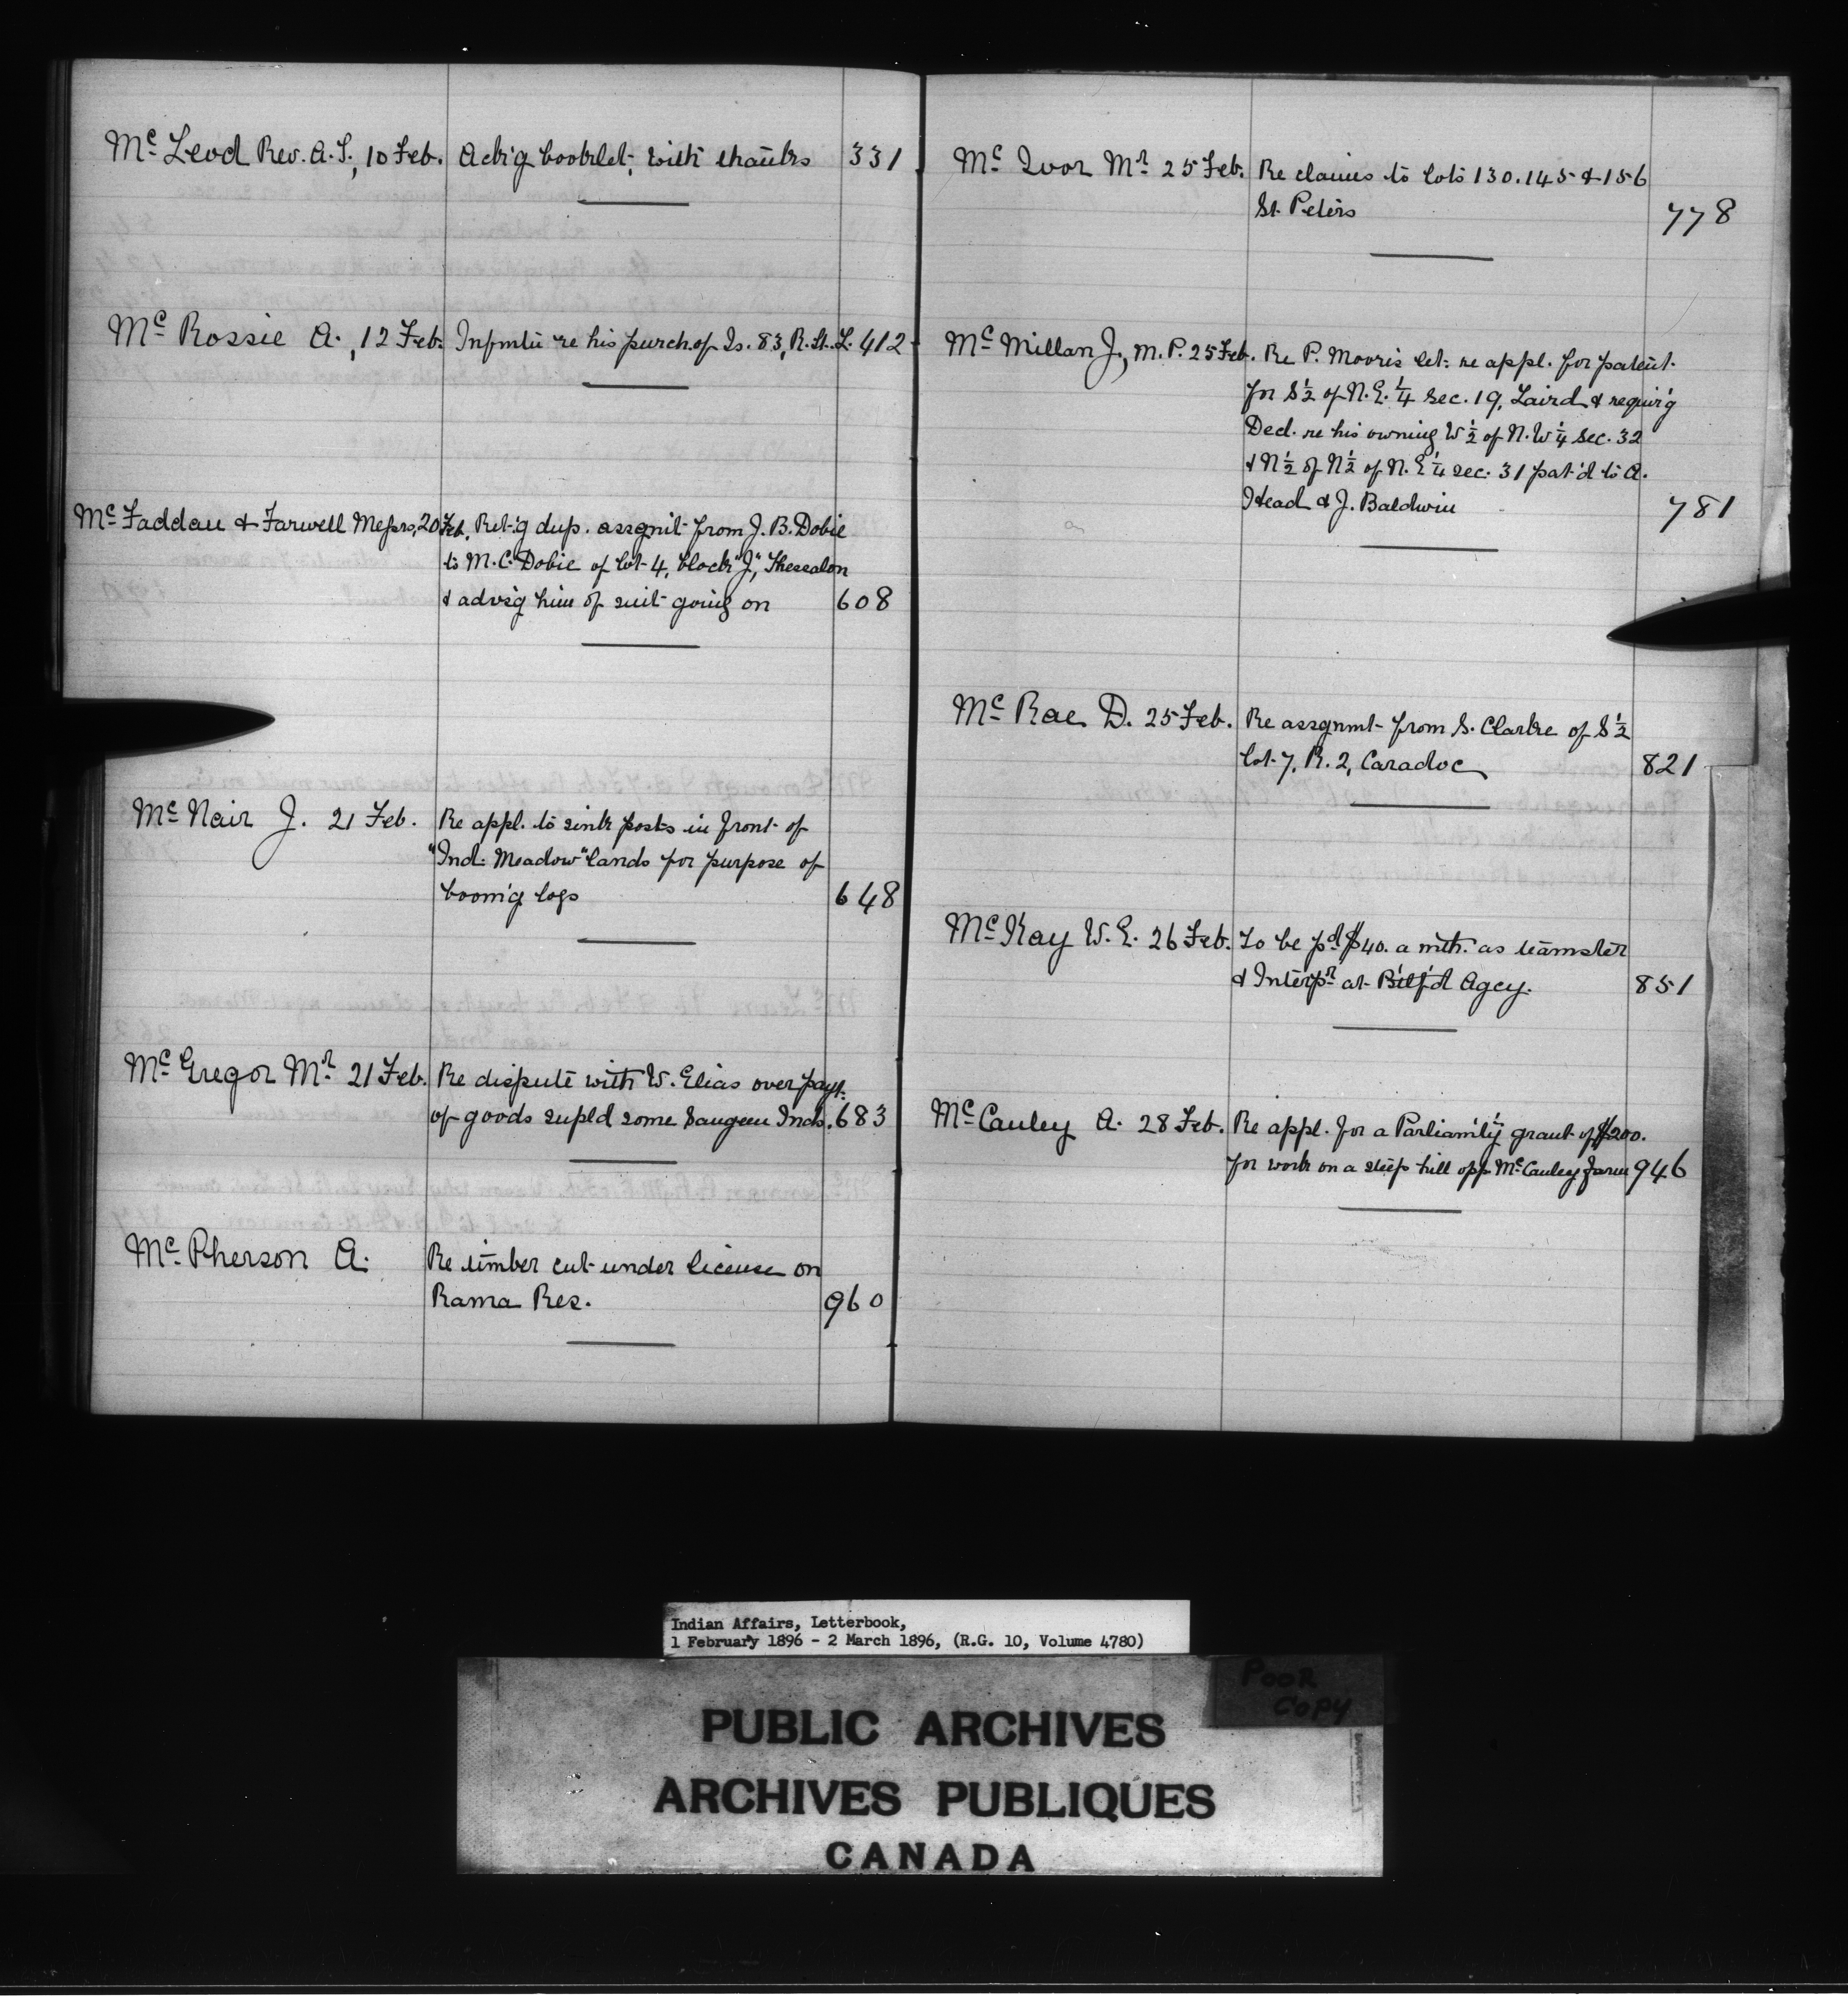 Mc Leod Rev. A. S., 10 Feb. Ack'g booklet, with thanks 331
Mc Rossie A., 12 Feb. Infmtn re his purch. of Is. 83, R. St. L. 412
Mc Faddau & Farwell Messrs, 20 Feb. Ret'g dup. assgnt from J. B. Dobie
to M. C. Dobie of Lot 4, block "J", Thessalon
& advs'g him of suit going on 608
Mc Nair J. 21 Feb. Re appl. to sink posts in front of
"Ind. Meadow" lands for purpose of
boom'g logs 648
Mc Gregor Mr 21 Feb. Re dispute with W. Elias over payt.
of goods supld some Saugeen Inds. 683
Mc Pherson A. Re timber cut under license on
Rama Res. 960
Mc Ivor Mr 25 Feb. Re claims to lots 130. 145 & 156
St. Peters 778
Mc Millan J., M.P. 25 Feb. Re P. Moor's let. re appl. for patent
for S ½ of N. E. ¼ Sec. 19, Laird & requir'g
Decl. re his owning W ½ of N. W ¼ Sec. 32
& N ½ of N ½ of N. E ¼ sec. 31 pat'd to A.
Head & J. Baldwin 781
Mc Rae D. 25 Feb. Re assgnmt from S. Clarke of S ½
Lot 7, R. 2, Caradoc 821
Mc Kay W. E. 26 Feb. To be pd $40. a mth. as teamster
& Interpr at Bttlf'd Agcy. 851
Mc Cauley A. 28 Feb. Re appl. for a Parliam'ty grant of $200.
for work on a steep hill opp. Mc Cauley farm 946
Indian Affairs, Letterbook,
1 February 1896 - 2 March 1896, (R.G. 10, Volume 4780)
POOR
COPY
PUBLIC ARCHIVES
ARCHIVES PUBLIQUES
CANADA